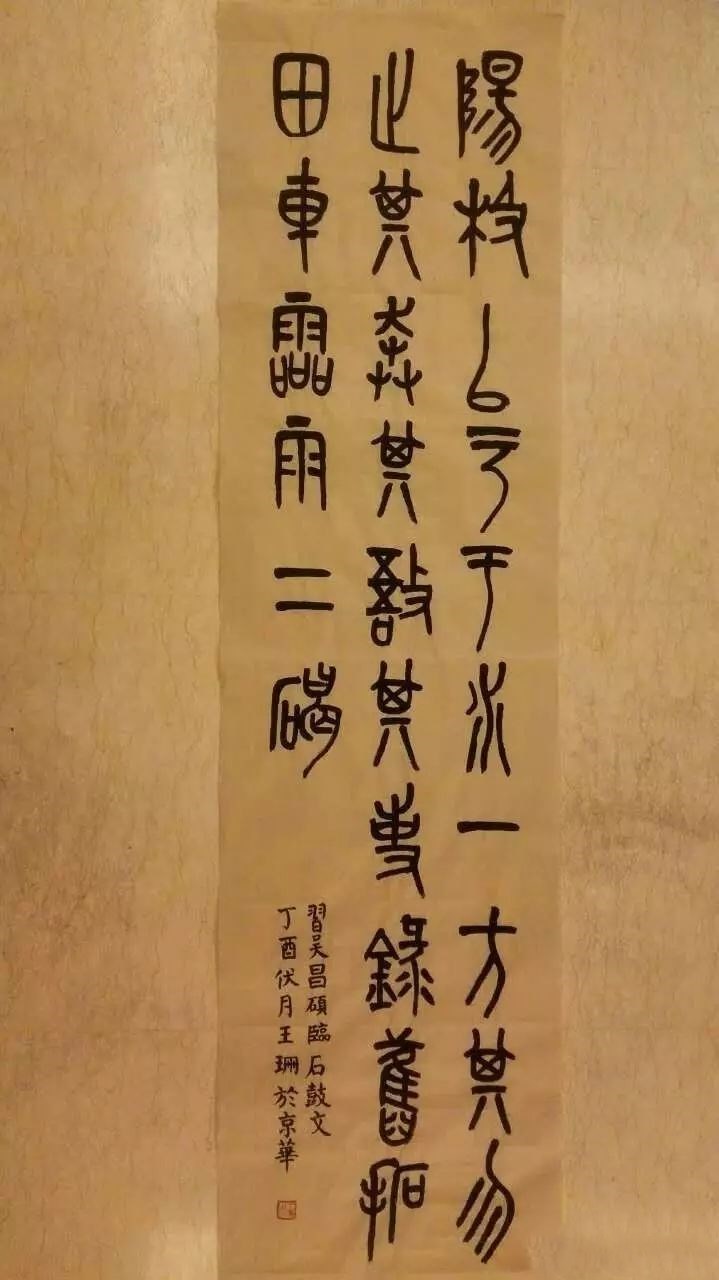 陽极以于水一方其勿
止其奔其敔其事錄舊拓
田車霝雨二碣
習吳昌碩臨石鼓文
丁酉伏月王珊於京華